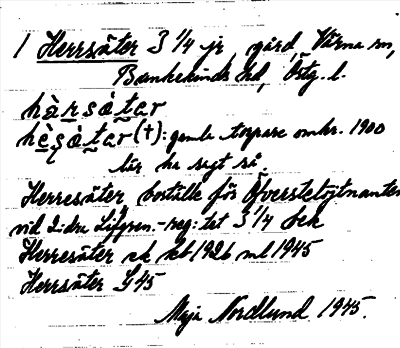 1 Herrsäter 3 1/4 jr, gård, Värna sn,
Bankekinds hd, Östg. l.
hàrsátar
hèsátar (†): gamla torpare omkr. 1900
lär ha sagt så.
Herresäter, boställe för Öfverstelöjtnanten
vid 2:dra Lifgren.-reg:tet 3 1/4 Sek
Herresäter ek kb 1926 ml 1945
Herrsäter G 45
Maja Nordlund 1945.